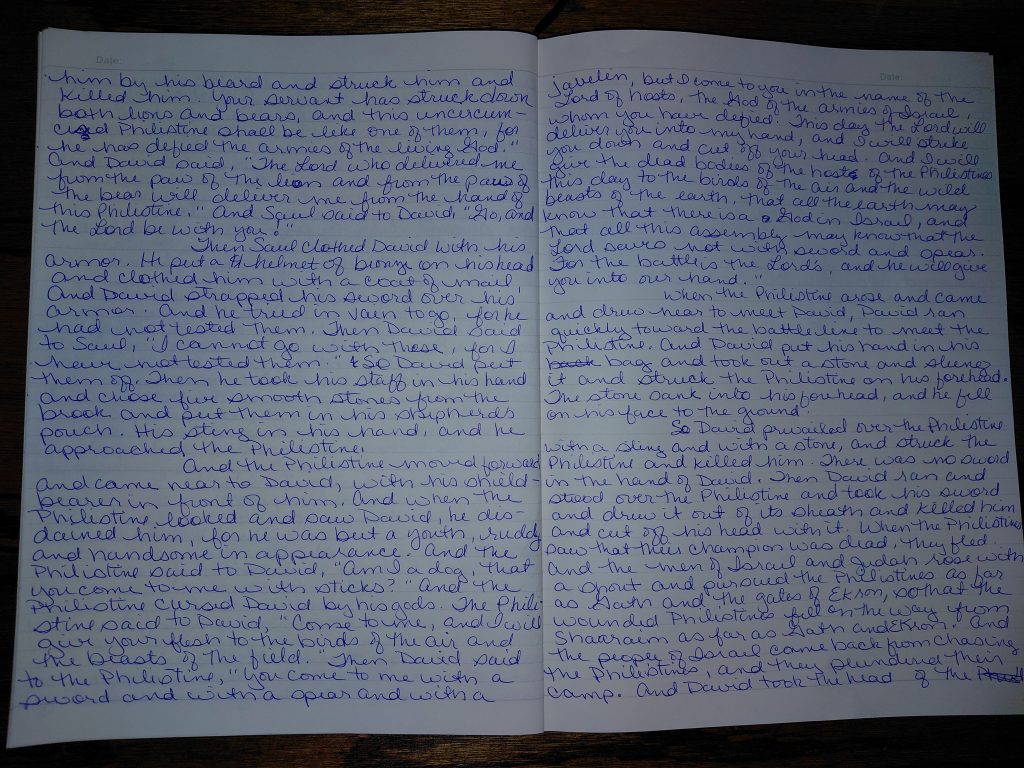 Date:
him by his beard and struck him and
killed him. Your servant has struck down
both lions and bears, and this uncircum-
cised Philistine shall be like one of them, for
he has defied the armies of the living God."
And David said, "The Lord who delivered me
from the paw of the lion and from the paw of
the bear will deliver me from the hand of
this Philistine." And Saul said to David "Go, and
the Lord be with you!"
Then Saul clothed David with his
armor. He put a helmet of bronze on his head
and clothed him with a coat of mail,
And David strapped his sword over his
armor. And he tried in vain to go, for he
had not tested them. Then David said
to Saul, "I cannot go with these, for I
have not tested them." So David put
them off. Then he took his staff in his hand
and chose five smooth stones from the
brook and put them in his shepherds
pouch. His sling in his hand, and he
approached the Philistine.
And the Philistine moved forward
and came near to David, with his shield-
bearer in front of him. And when the
Philistine looked and saw David, he dis-
dained him, for he was but a youth, ruddy
and handsome in appearance. And the
Philistine said to David, "Am I a dog, that
you come to me with sticks?" And the
Philistine cursed David by his gods. The Phili-
stine said to David, "Come to me, and I will
give your flesh to the birds of the air and
the beasts of the field." Then David said
to the Philistine, "You come to me with a
sword and with a spear and with a
Date:
javelin, but I come to you in the name of the
Lord of hosts, the God of the armies of Israel,
whom you have defied. This day the Lord will
deliver you into my hand, and I will strike
you down and cut off your head. And I will
give the dead bodies of the hosts of the Philistines
this day to the birds of the air and the wild
beasts of the earth. That all the earth may
know that there is a God in Israel, and
that all this assembly may know that the
Lord saves not with sword and spear.
For the battle is the Lord's, and he will give
you into our hand."
When the Philistine arose and came
and drew near to meet David, David ran
quickly toward the battle line to meet the
Philistine. And David put his hand in his
bag and took out a stone and slung
it and struck the Philistine on his forehead.
The stone sank into his forehead, and he fell
on his face to the ground.
So David prevailed over the Philistine
with a sling and with a stone, and struck the
Philistine and killed him. There was no sword
in the hand of David. Then David ran and
stood over the Philistine and took his sword
and drew it out of its sheath and killed him
and cut off his head with it. When the Philistines
saw that their champion was dead, they fled.
And the men of Israel and Judah rose with
a shout and pursued the Philistines as far
as Gath and the gates of Ekron, so that the
wounded Philistines fell on the way from
Shaaraim as far as Gath and Ekron. And
the people of Israel came back from chasing
the Philistines, and they plundered their
camp. And David took the head of the